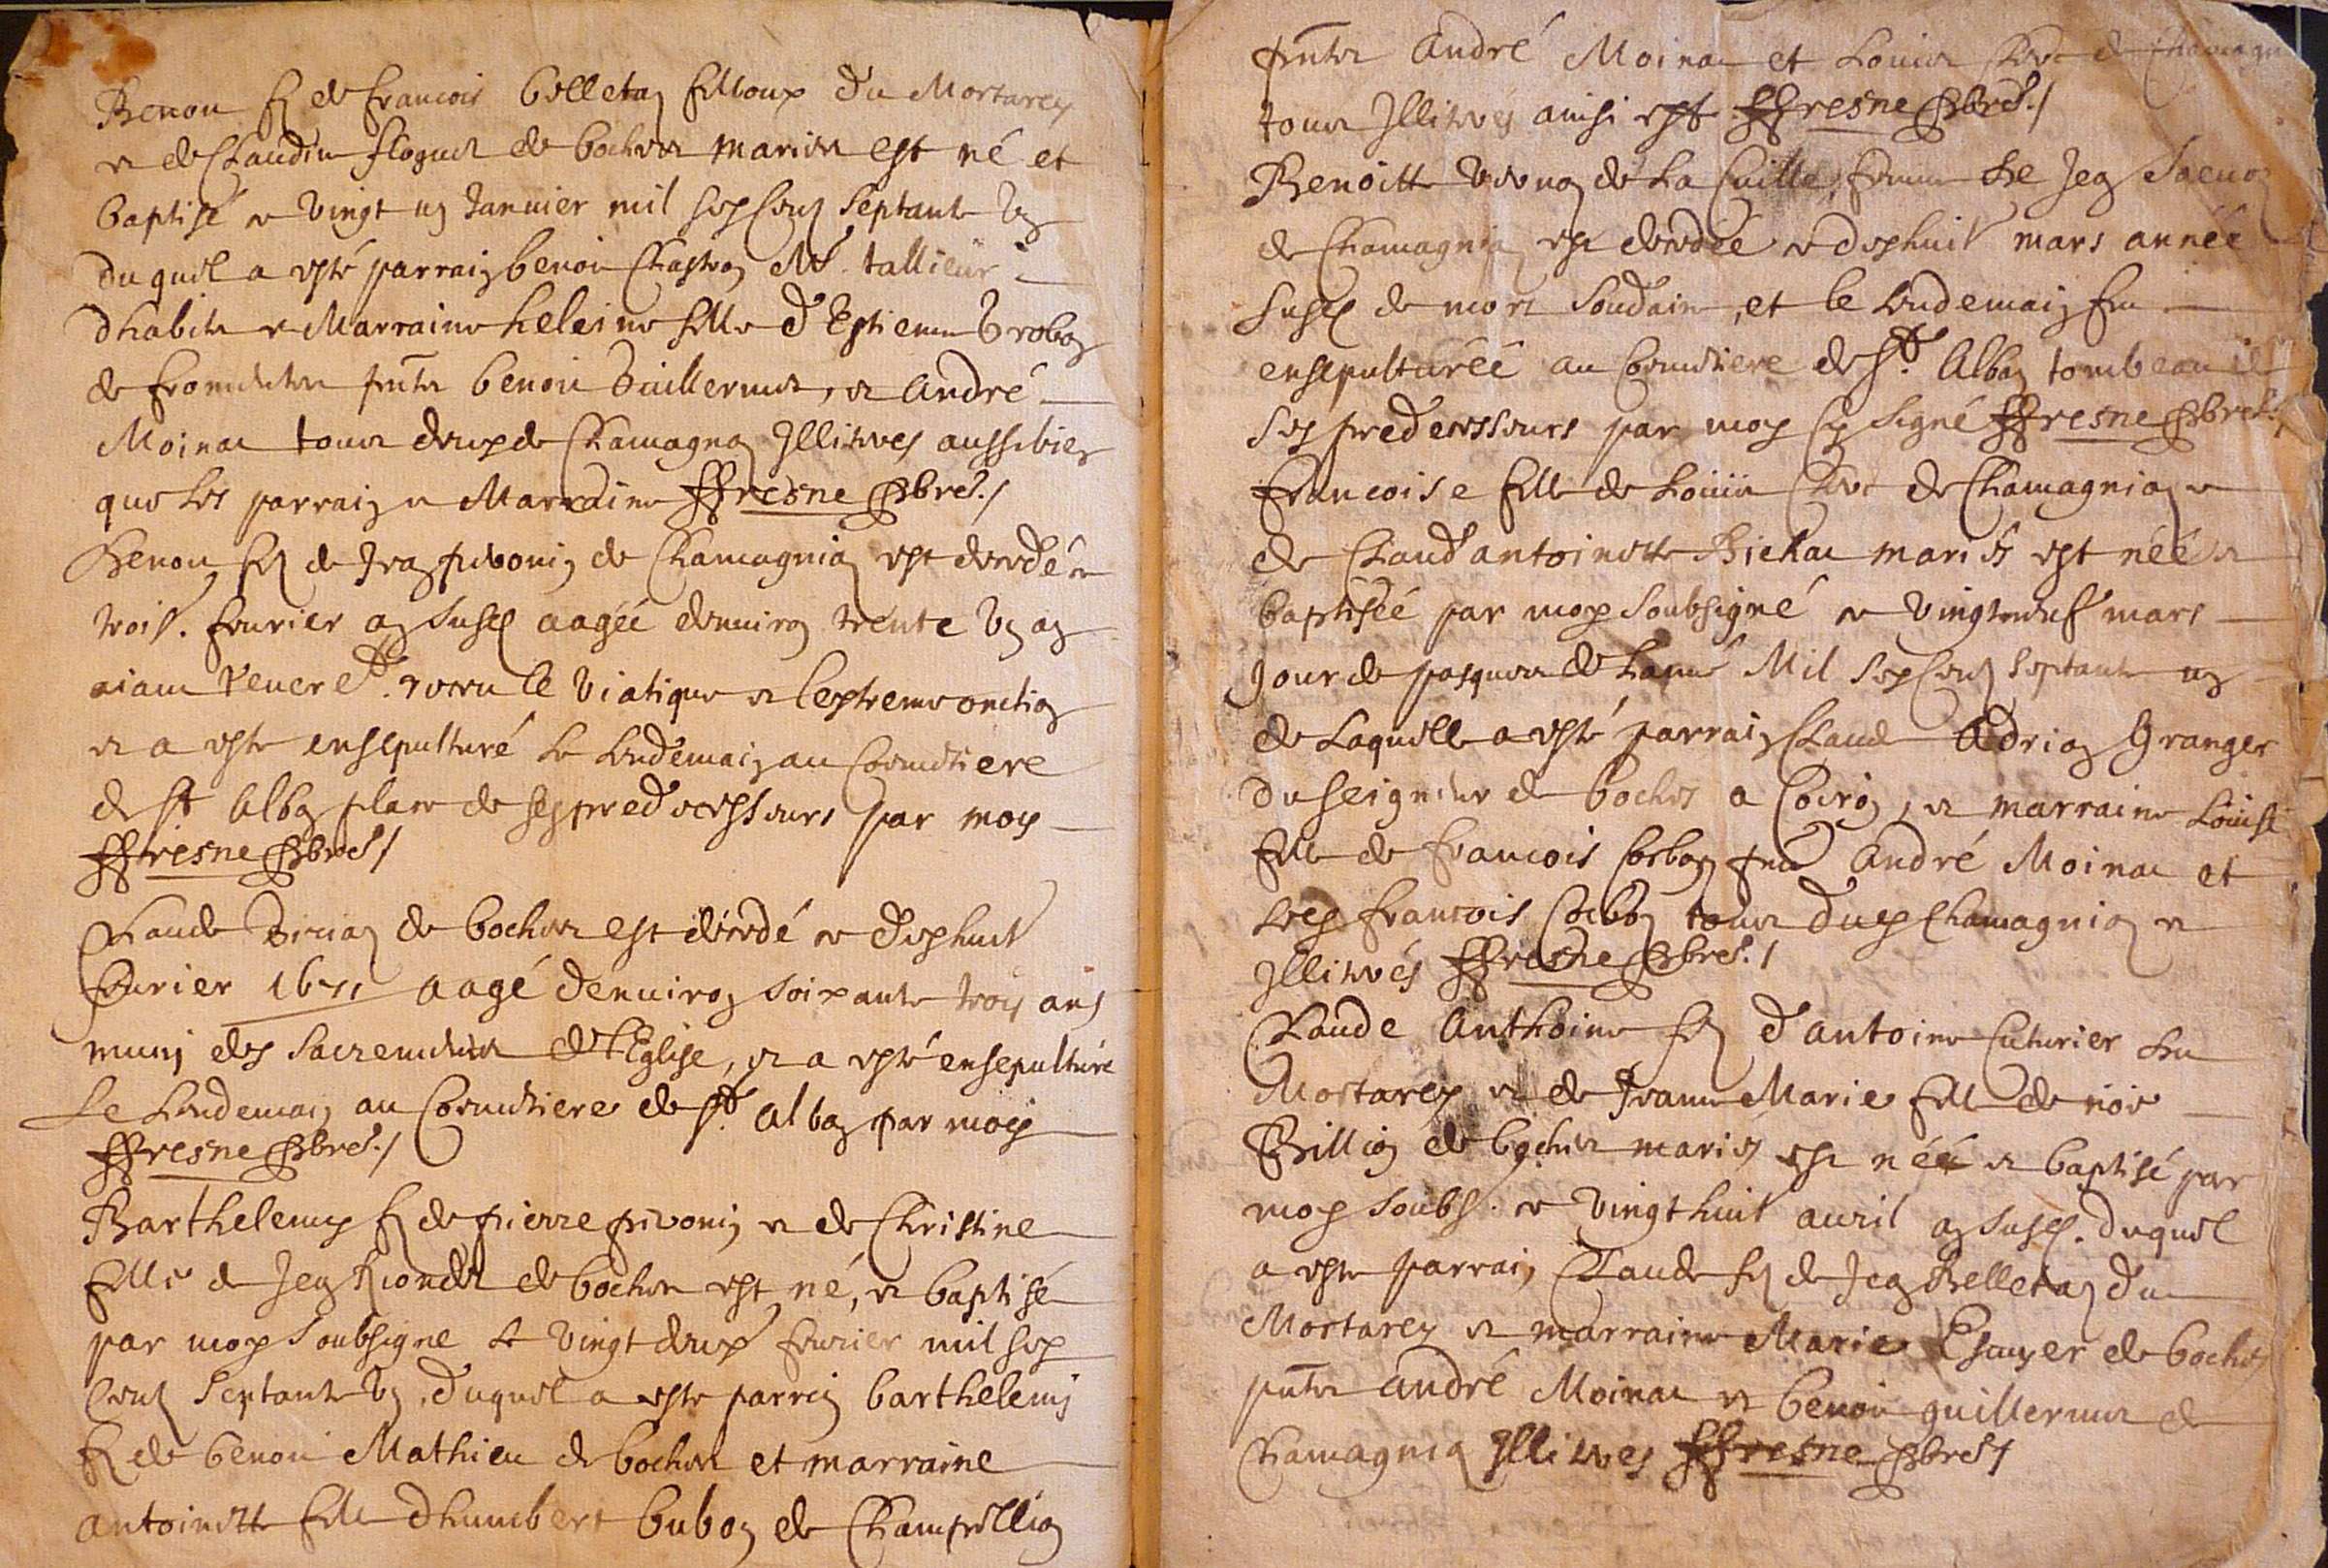 Benon fz de francois belletaz filloux du Mortarey
et de Claudine floquet de bochet mariez est né et
baptisé ce vingt uz Januier mil sex Centz septante vz
duquel a esté parraiz benoi Chastroz Mre. tallieur
dhabitz et Marraine heleine fille d'Estienne broboz
de fromentes pnts benoi Guillermet, et André
Moinat tous deux de Chamagnoz Illitres aussi biez
que les parraiz et Marraine ffresne pbre./
Benon fz de Jeaz piuoniz de Chamagniaz est decedé ce
trois. feurier az susd aagée denuiroz trente vz az
aiant reuer et. receu le viatique et lextreme onctioz
et a este ensepulturé le lendemaiz au Coemetiere
de st Albaz place de ses predecessours par moy
ffresne pbre/
Claude de bochet est decedé ce dixhuit
feurier 1671 aagé denuiroz soixante trois ans
muni des sacrements de l'Eglise, et a esté ensepulturé
le lendemaiz au Coemetiere de st. albaz par moy
ffresne pbre./
Barthelemy fz de pierre piuoniz et de Christine
fille de Jeaz Riondet de bochet est né, et baptisé
par moy soubsigne le vingt deux feurier mil sex
Centz septante vz. duquel a este parraiz barthelemy
fz de benoi Mathieu de bochet et marraine
antoinette fille dhumbert buboz de Champillioz
pnts André Moinat et Louis Clert de Chamagn
tous Illitrés ainsi est ffresne pbre./
Benoitte de La Cuille, femme de Jeaz
de Chamagniaz est decedée ce dixhuit mars année
susd de mort soudaine, et le lendemaiz fut
ensepulturéé au Coemetiere de st. Albaz tombeau de
ses predecessours par moy cy signé ffresne pbre./
Francoise fille de Louis Clert de Chamagniaz et
de Claud'antoinette Bichat mariés est néé et
baptiséé par moy soubsigné ce vingtneuf mars
Jour de pasques de Lanné Mil sex Centz septante uz
de Laquelle a esté parraiz Claude Adriaz Granger
du seigneur de bochet a Coiroz, et marraine Louise
fille de francois Corboz pnts André Moinat et
led francois Corboz tous dud Chamagniaz et
Illitrés ffresne pbre./
Claude Anthoine fz d'antoine Cuturier du
Mortarey et de Jeanne Marie fille de noé
Billioz de bochet mariés est néé et baptisé par
moy soubs. ce vingthuit auril az susd. duquel
a este parraiz Claude fz de Jeaz Belletaz du
Mortarey et marraine Marie Escuyer de bochet
pnts André Moinat et benoi guillermet de
Chamagniaz Illitres ffresne pbre/